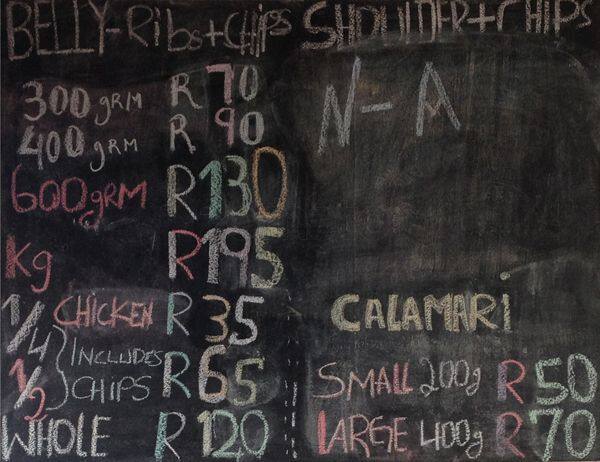 BELLY-Ribs+CHIPS
300 gRM R 70
400 gRM R 90
600gRM R130
Kg R195
1/4 CHICKEN R 35
1/2 INCLUDES CHIPS R 65
WHOLE R 120
SHOULDER+CHIPS
N-A
CALAMARi
SMALL 200g R 50
LARGE 400g R 70